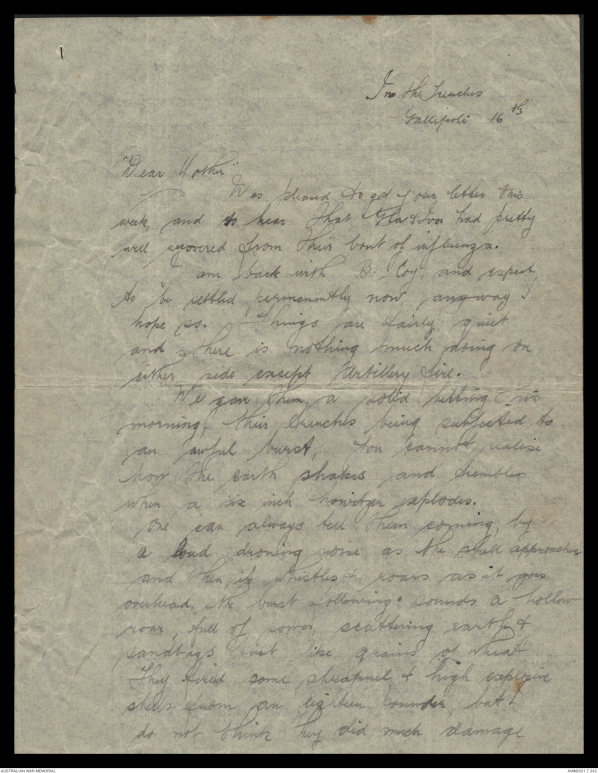 In the Trenches
Gallipoli 16th
"Dear Mother"
Was pleased to get your letter this
week, and to hear that had pretty
well recovered from their bout of influenza.
I am back with B. Coy, and expect
to be settled permanently now, anyway I
hope so. Things are fairly quiet
and there is nothing much doing on
either side except Artillery fire.
We gave them a solid betting this
morning, their trenches being subjected to
an awful burst, You cannot realise
how the earth shakes and trembles
when a six inch howitzer explodes.
One can always tell them coming, by
a loud droning noise as the shell approaches
and then it whistles & roars as it goes
overhead, the burst following sounds a hollow
roar, full of power, scattering earth &
sandbags just like grains of wheat
They fired some shrapnel & high explosive
shells from an eighteen pounder, but I
do not think they did much damage
AUSTRALIAN WAR MEMORIAL